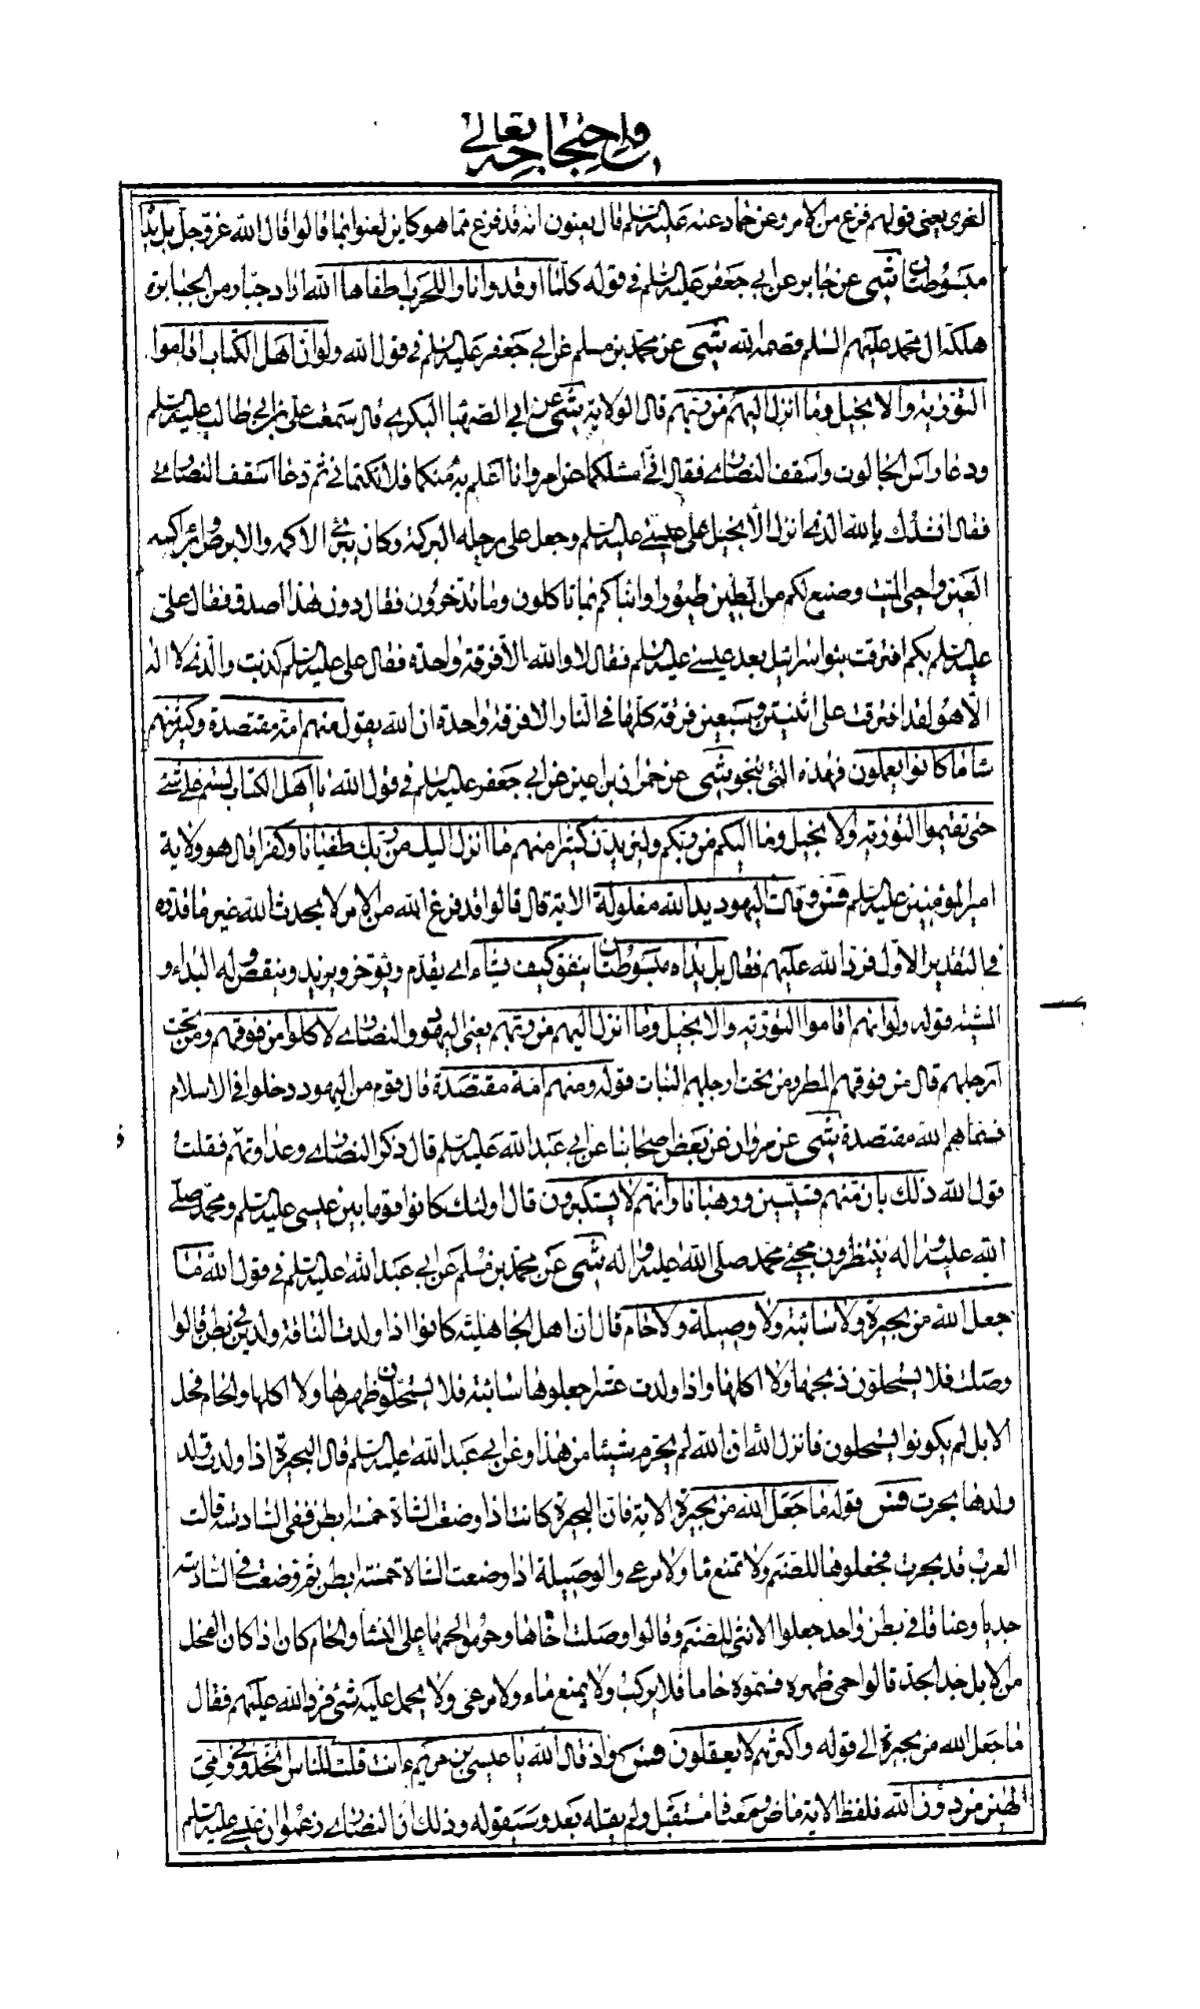 باب احتجاجه تعالى
لغرى يعنى قولهم فرغ من الامر وعن حماد عنه عليه السلم قال يعنون انه قد فرغ مما هو كاين لعنوا بما قالوا قال الله عز وجل بل يداه
مبسوطتان شى عن جابر عن ابى جعفر عليه السلم فى قوله كلما اوقدوا نارا للحرب اطفاها الله اراد جبار من الجبابرة
هلكة ال محمد عليهم السلم قصمه الله شى عن محمد بن مسلم عن ابى جعفر عليه السلم فى قول الله ولو ان اهل الكتاب اقاموا
التورية والانجيل وما انزل اليهم من ربهم قال الولاية شى عن ابى الصهبا البكرى قال سمعت على بن ابى طالب عليه السلم
ودعا راس الجالوت واسقف النصارى فقال انى اسئلكما عن امر وانا اعلم به منكما فلا تكتمانى ثم دعا اسقف النصارى
فقال انشدك بالله الذى انزل الانجيل على عيسى عليه السلم وجعل على رجله البركة وكان يبرئ الاكمه والابرص وابرا كمه
العين واحيى الميت وصنع لكم من الطين طيورا وانباكم بما تاكلون وما تدخرون فقال دون هذا اصدق فقال على
عليه السلم بكم افترقت بنو اسرائيل بعد عيسى عليه السلم فقال لا والله الا فرقة واحدة فقال على عليه السلم كذبت والذى لا اله
الا هو لقد افترقت على اثنتين وسبعين فرقة كلها فى النار الا فرقة واحدة ان الله يقول منهم امة مقتصدة وكثير منهم
ساء ما كانوا يعملون فهذه التى تنجو شى عن حمران بن اعين عن ابى جعفر عليه السلم فى قول الله يا اهل الكتاب لستم على شئ
حتى تقيموا التورية والانجيل وما اليكم من ربكم وليزيدن كثيرا منهم ما انزل اليك من ربك طغيانا وكفرا قال هو ولاية
امير المؤمنين عليه السلم فس وقالت اليهود يد الله مغلولة الاية قال قالوا قد فرغ الله من الامر لا يحدث الله غير ما قدره
فى التقدير الاول فرد الله عليهم فقال بل يداه مبسوطتان ينفق كيف يشاء اى يقدم ويؤخر ويزيد وينقص وله البداء و
المشية قوله ولو انهم اقاموا التورية والانجيل وما انزل اليهم من ربهم يعنى اليهود والنصارى لاكلوا من فوقهم ومن تحت
ارجلهم قال من فوقهم المطر ومن تحت ارجلهم النبات قوله ومنهم امة مقتصدة قال قوم من اليهود دخلوا فى الاسلام
فسماهم الله مقتصدة شى عن مروان عن بعض اصحابنا عن ابى عبد الله عليه السلم قال ذكر النصارى وعداوتهم فقلت
قول الله ذلك بان منهم قسيسين ورهبانا وانهم لا يستكبرون قال اولئك كانوا قوما بين عيسى عليه السلم ومحمد صلى
الله عليه واله ينتظرون مجئ محمد صلى الله عليه واله شى عن محمد بن مسلم عن ابى عبد الله عليه السلم فى قول الله ما
جعل الله من بحيرة ولا سائبة ولا وصيلة ولا حام قال ان اهل الجاهلية كانوا اذا ولدت الناقة ولدين فى بطن قالوا
وصلت فلا يستحلون ذبحها ولا اكلها واذا ولدت عشرا جعلوها سائبة فلا يستحلون ظهرها ولا اكلها والحام فحل
الابل لم يكونوا يستحلون فانزل الله ان الله لم يحرم شيئا من هذا وعن ابى عبد الله عليه السلم قال البحيرة اذا ولدت ولد
ولدها بحرت فس قوله ما جعل الله من بحيرة الاية فان البحيرة كانت اذا وضعت الشاة خمسة ابطن ففى السادسة قالت
العرب قد بحرت فجعلوها للصنم ولا تمنع ماء ولا مرعى والوصيلة اذا وضعت الشاة خمسة ابطن ثم وضعت فى السادسة
جديا وعناقا فى بطن واحد جعلوا الانثى للصنم وقالوا وصلت اخاها وحرموا لحمها على النساء والحام كان اذا كان الفحل
من الابل جد الجد قالوا حمى ظهره فسموه حاما فلا يركب ولا يمنع ماء ولا مرعى ولا يحمل عليه شئ فرد الله عليهم فقال
ما جعل الله من بحيرة الى قوله واكثرهم لا يعقلون فس واذ قال الله يا عيسى بن مريم ءانت قلت للناس اتخذونى وامى
الهين من دون الله فلفظ الاية ماض ومعناه مستقبل ولم يقله بعد وسيقوله وذلك ان النصارى زعموا ان عيسى عليه السلم